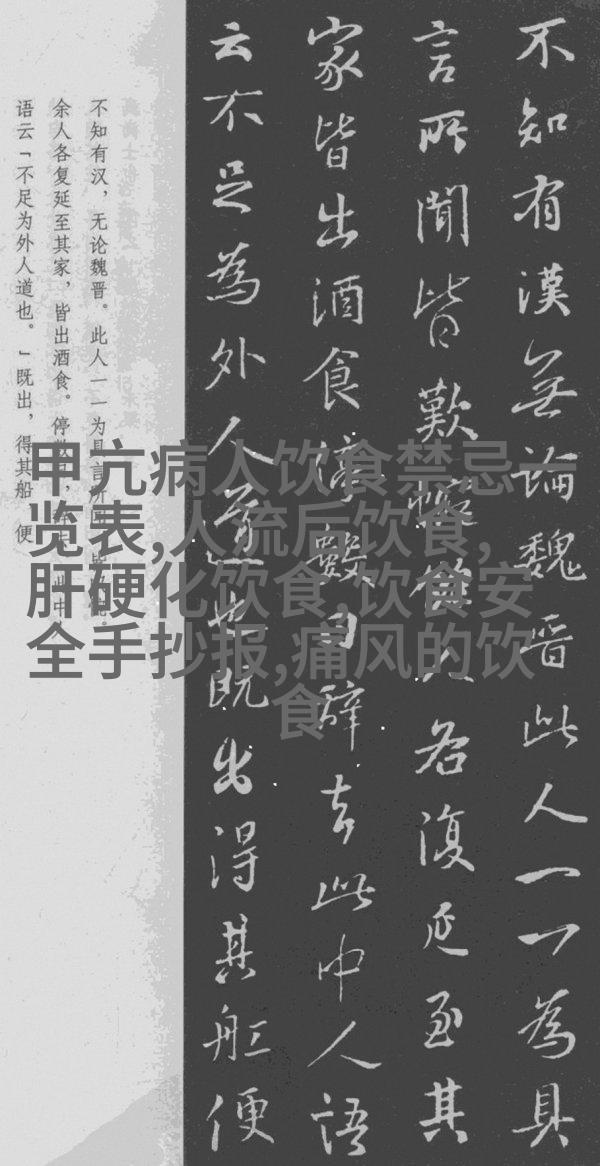 不知有漢無論魏晋此人一一為具
言所聞皆歎惋餘人各復延至其
家皆出酒食停數日辭去此中人語
云不足為外人道也既出得其舡便
不知有汉，无论魏晋。此人一一为具言所闻，皆
余人各复延至其家，皆出酒食。停数日，辞去。此中
语云「不足为外人道也。」既出，得其船 便
甲亢病人饮食禁忌一
览表,人流后饮食,
肝硬化饮食,饮食安
全手抄报,痛风的饮
食